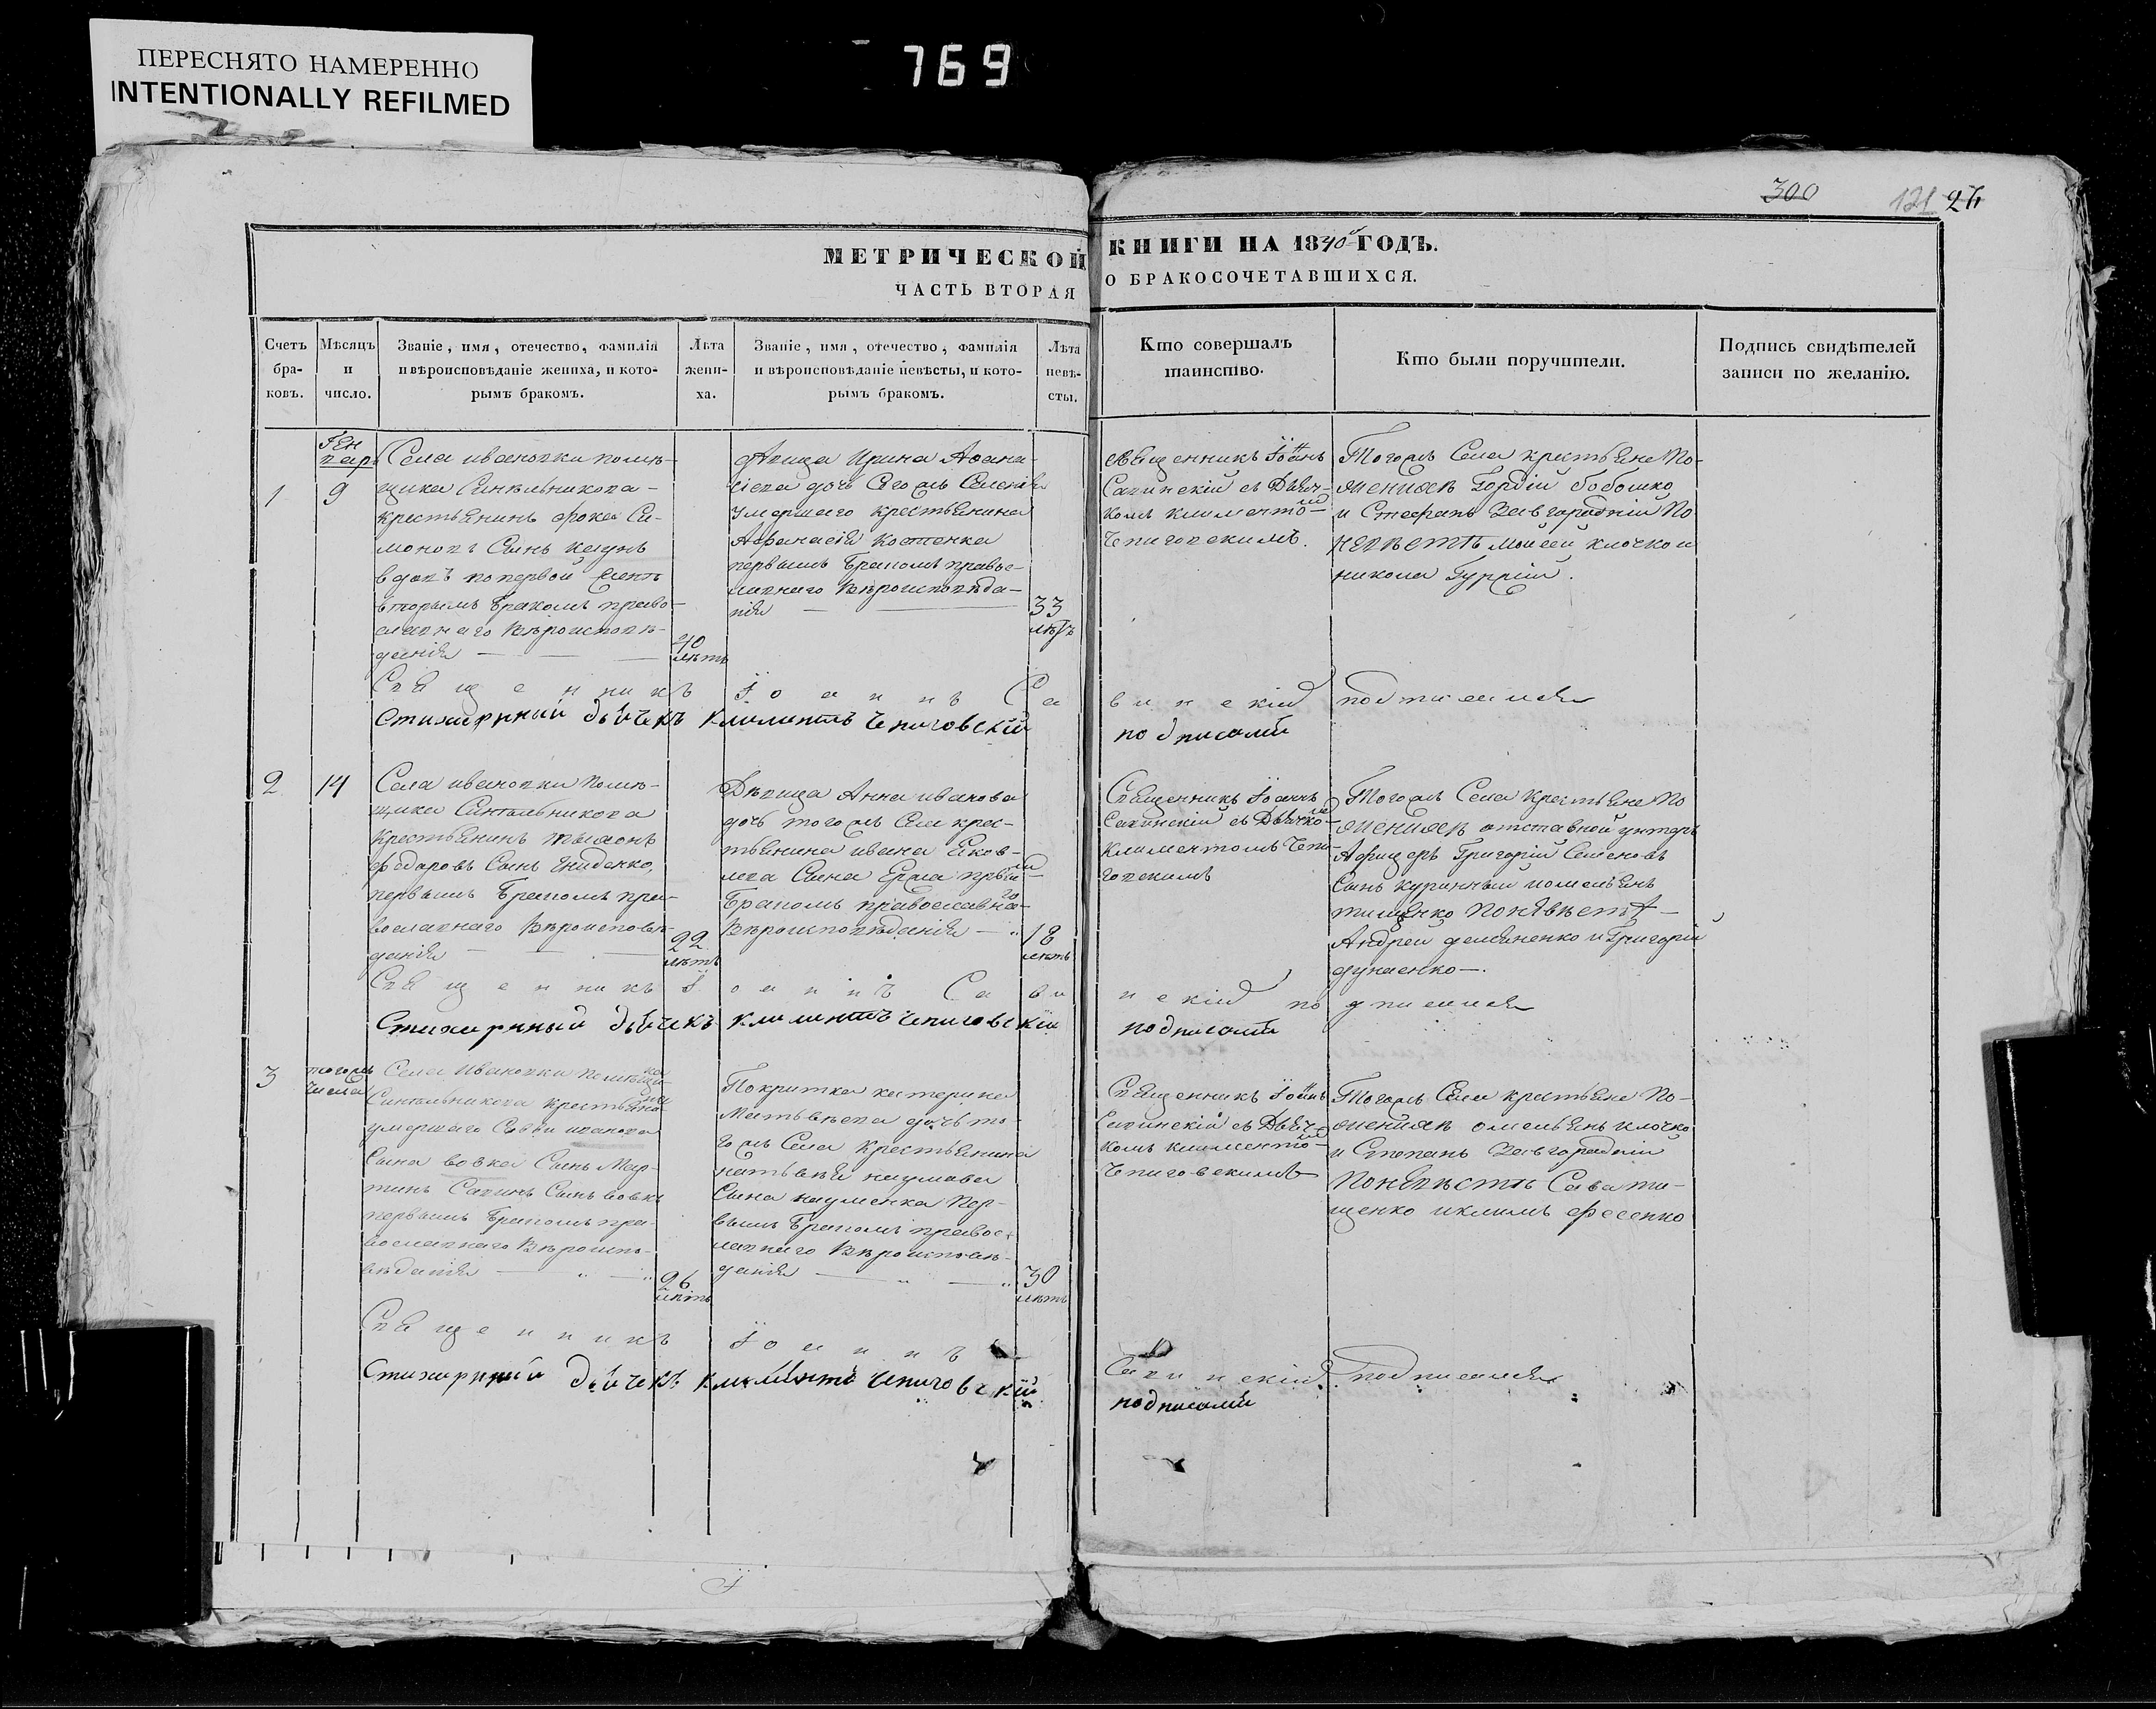 ПЕРЕСНЯТО НАМЕРЕННО
INTENTIONALLY REFILMED
769
300
121 27
МЕТРИЧЕСКОЙ КНИГИ НА 1840й ГОДЪ.
ЧАСТЬ ВТОРАЯ О БРАКОСОЧЕТАВШИХСЯ.
Счетъ
бра-
ковъ.
Мѣсяцъ
и
число.
Званіе, имя, отечество, фамилія
и вѣроисповѣданіе жениха, и кото-
рымъ бракомъ.
Лѣта
жени-
ха.
Званіе, имя, отечество, фамилія
и вѣроисповѣданіе невѣсты, и кото-
рымъ бракомъ.
Лѣта
невѣ-
сты.
Кто совершалъ
таинство.
Кто были поручители.
Подпись свидѣтелей
записи по желанію.
1
Ген
вар
9
Села ивановки помѣ-
щика Синельникова
крестьянинъ фрока Си-
моновъ Сынъ
вдовъ по первой
вторымъ бракомъ право-
славнаго вѣроисповѣ-
данія
40
лѣтъ
Дѣвица Ирина Афана-
сіева дочь Тогожъ Села
умершаго крестьянина
Афанасія Костенка
первымъ бракомъ правос-
лавнаго вѣроисповѣда-
нія
33
лѣтъ
Священникъ Іоаннъ
Савинскій съ Дьяч-
комъ климентомъ
Чепиговскимъ.
Тогожъ Села крестьяне По
женихѣ Гордій бобошко
и Стефанъ Завгородній По
невѣстѣ Моисей клочко и
никола Гуррій.
Священникъ Іоаннъ Савинскій подписался
Стихарный дьячекъ климентъ Чепиговскій подписался
2
14
Села ивановки помѣ-
щика Синельникова
крестьянинъ
федоровъ Сынъ Гниденко,
первымъ бракомъ пра-
вославнаго вѣроисповѣ-
данія
22
лѣтъ
Дѣвица Анна иванова
дочь тогожъ Села крес-
тьянина ивана Яков-
лева Сына
бракомъ православнаго
вѣроисповѣданія
18
лѣтъ
Священникъ Іоаннъ
Савинскій съ Дьячкомъ
климентомъ Чепи-
говскимъ
Тогожъ Села крестьяне По
женихѣ отставной унтеръ
Афицеръ Григорій Семеновъ
Сынъ куринный иомельянъ
тищенко По невѣстѣ
Андрей демяненко и Григорій
дунаенко.
Священникъ Іоаннъ Савинскій подписался
Стихарный дьячекъ климентъ Чепиговскій подписался
3
тогожъ
числа
Села Ивановки помѣщика
Синельникова крестьянина
умершаго Саввы иванова
Сына вовка Сынъ Мар-
тинъ Савинъ Сынъ вовкъ
первымъ бракомъ пра-
вославнаго вѣроиспо-
вѣданія
26
лѣтъ
Покритка катерина
Матьвѣева дочь то-
гожъ Села крестьянина
матьвѣя наумова
Сына науменка Пер-
вымъ бракомъ правос-
лавнаго вѣроисповѣ-
данія
30
лѣтъ
Священникъ Іоаннъ
Савинскій съ Дьяч-
комъ климентомъ
Чепиговскимъ
Тогожъ Села крестьяне По-
женихѣ омельянъ клочко
и Степанъ Завгородній
По невѣстѣ Сава ти-
щенко иклимъ фесенко
Священникъ Іоаннъ Савинскій подписался
Стихарный дьячекъ климентъ Чепиговскій подписался